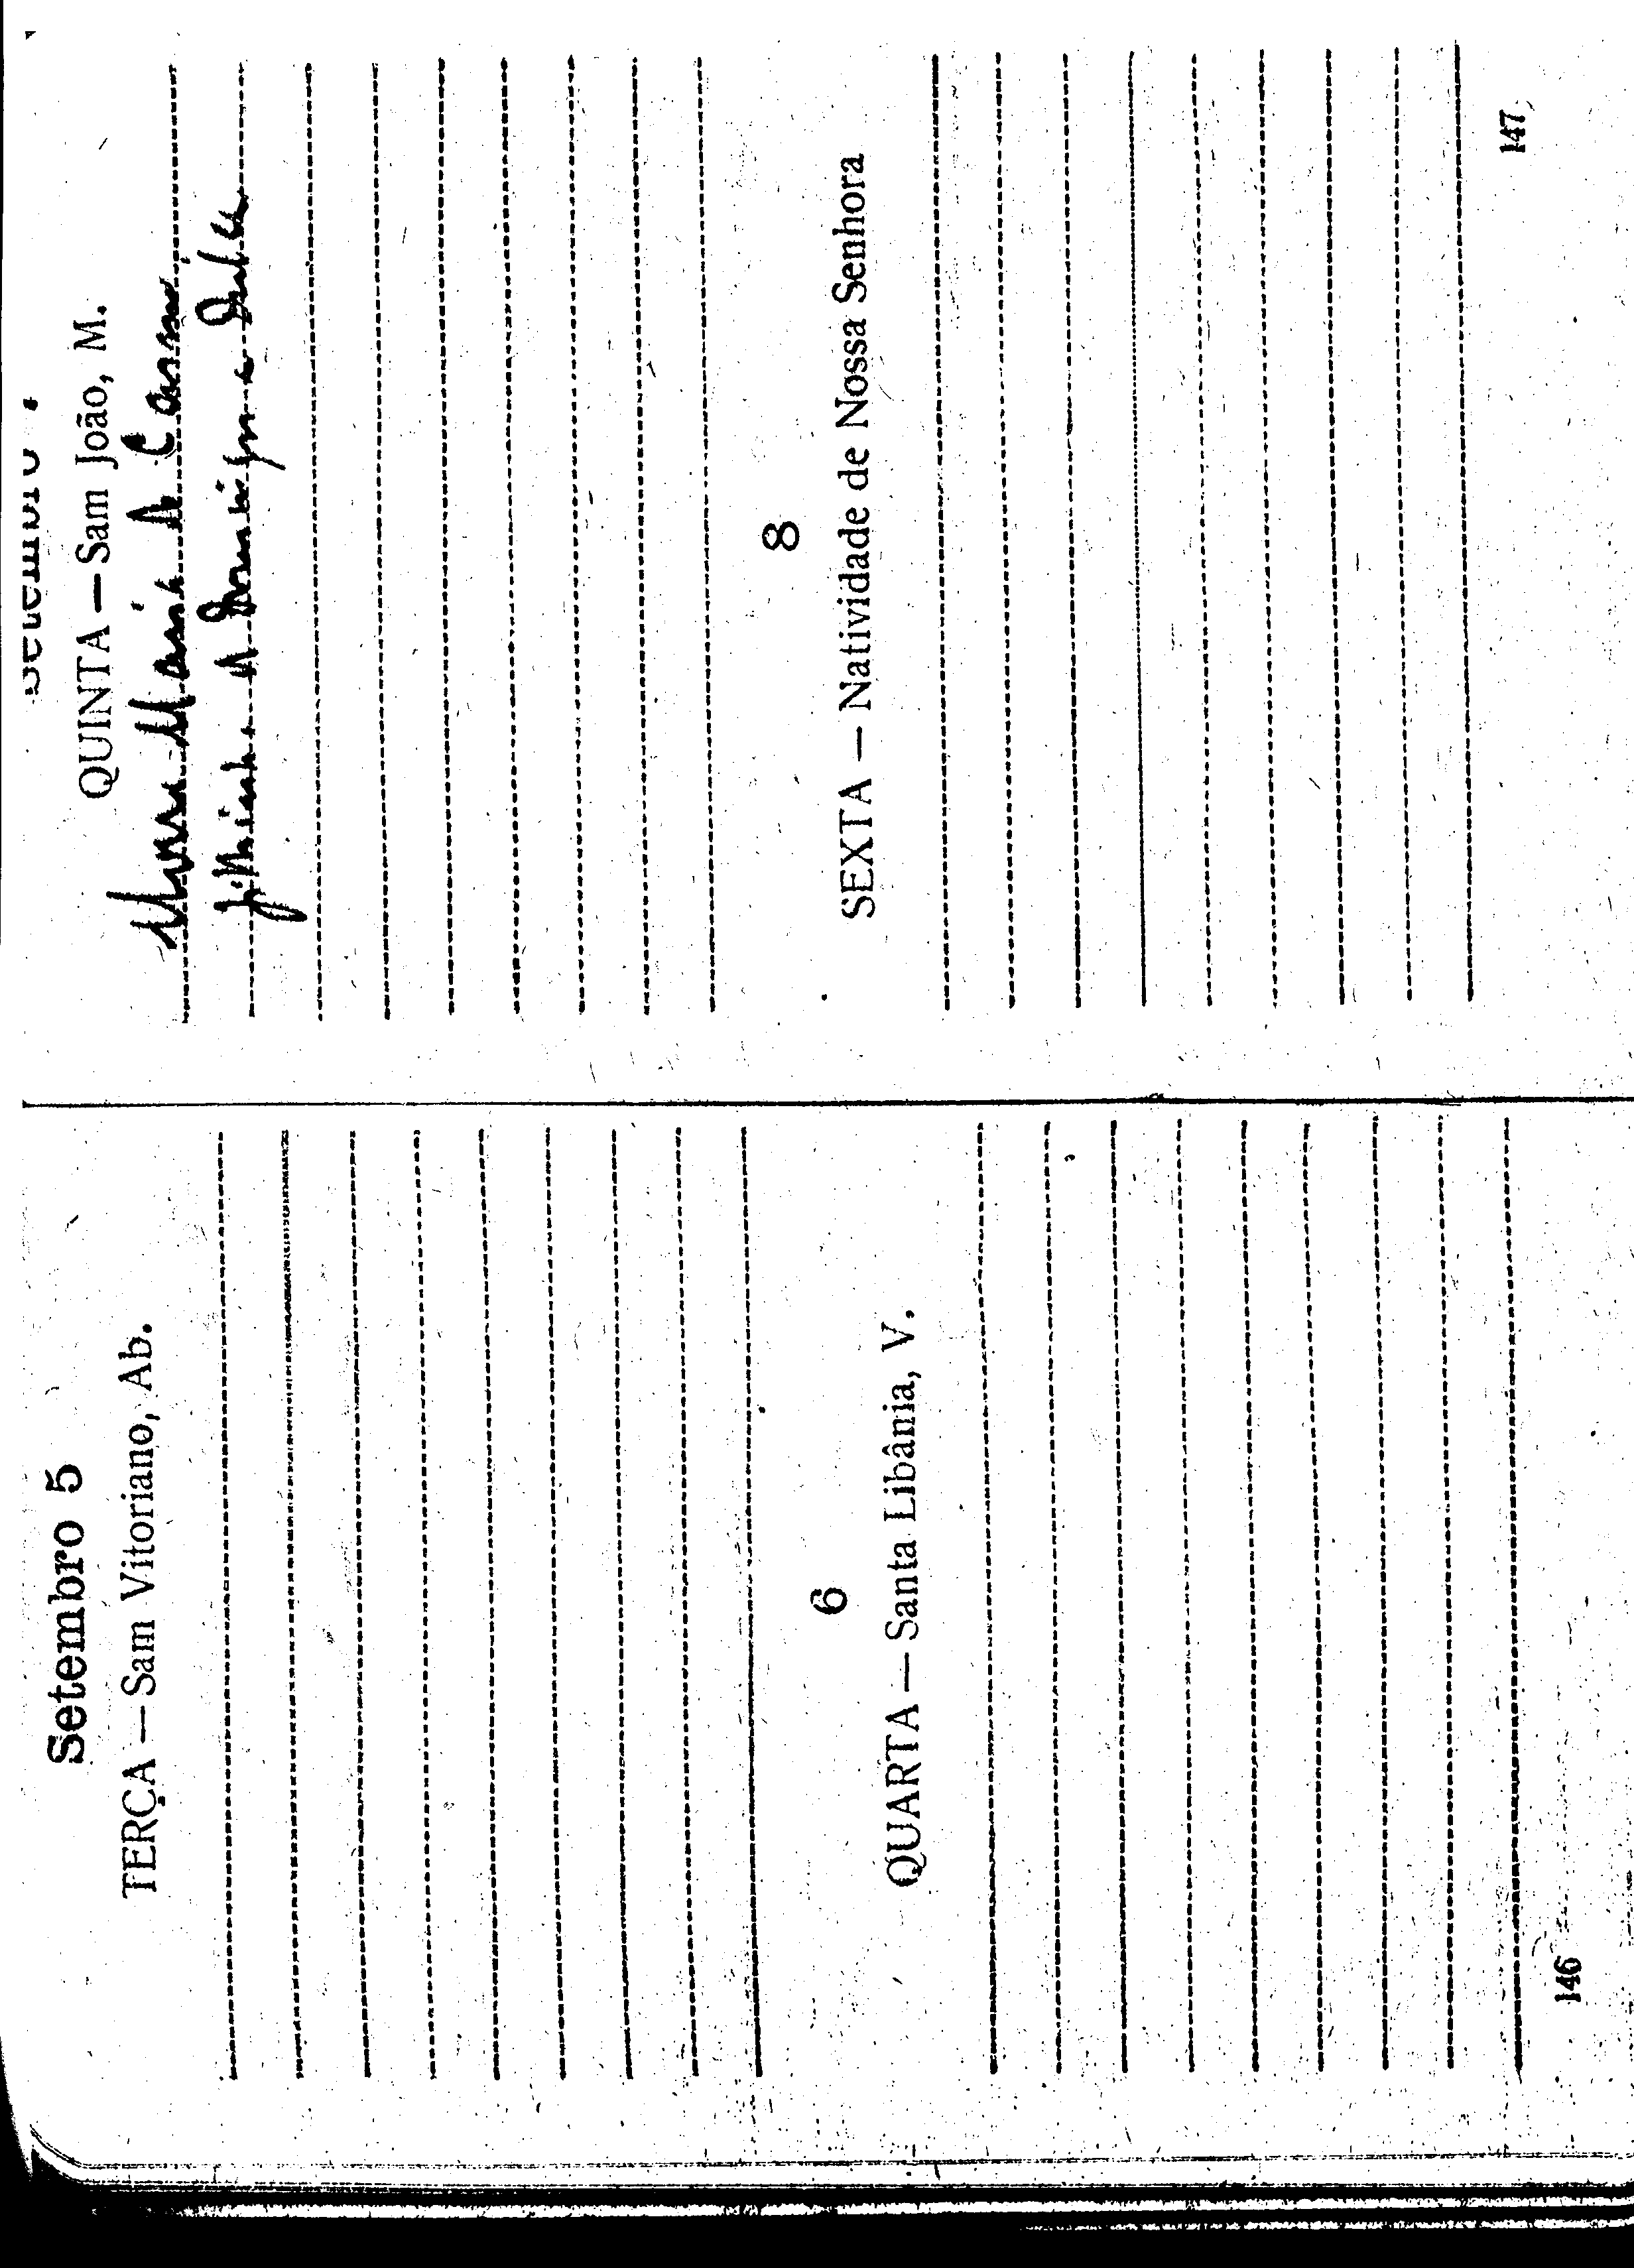 Setembro 5
TERÇA — Sam Vitoriano, Ab.
6
QUARTA — Santa Libânia, V.
146
Setembro 7
QUINTA — Sam João, M.
Maria de
8
SEXTA — Natividade de Nossa Senhora
147